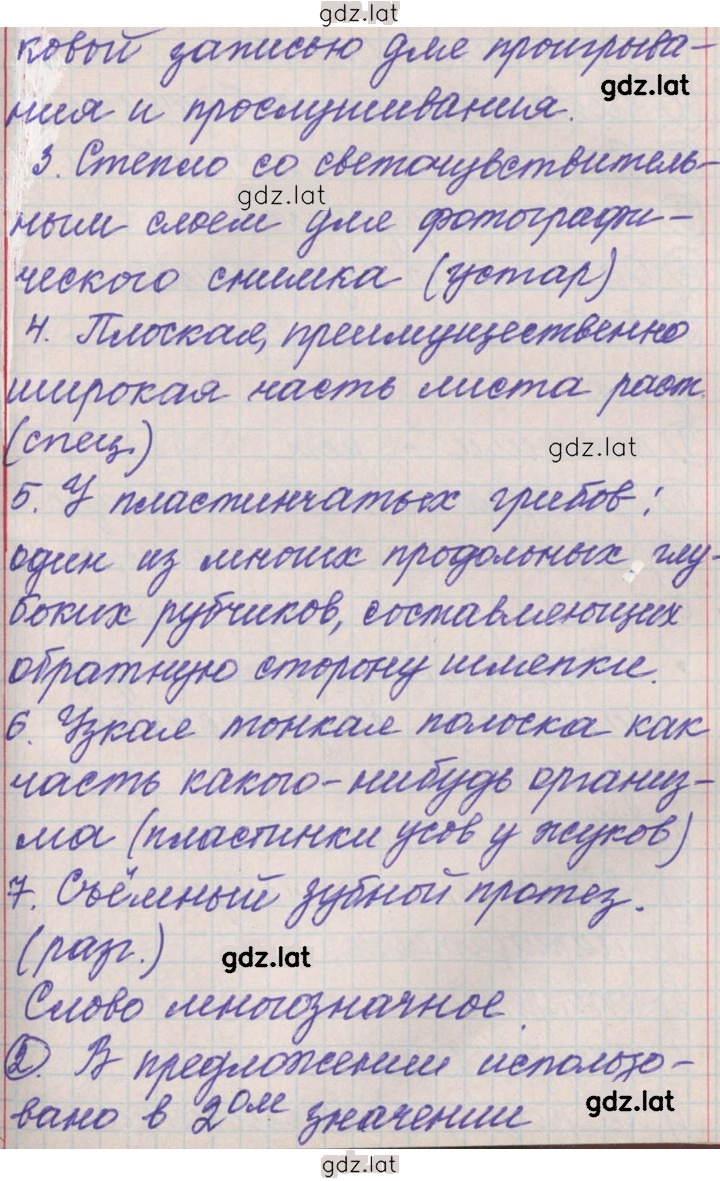 gdz.lat
ковой записью для проигрыва-
gdz.lat
ния и прослушивания.
3. Стекло со светочувствитель-
gdz.lat
ным слоем для фотографи-
ческого снимка (устар)
4. Плоская, преимущественно
широкая часть листа раст.
(спец.)
gdz.lat
5. У пластинчатых грибов:
один из многих продольных глу-
боких рубчиков, составляющих
обратную сторону шляпки.
6. Узкая тонкая полоска как
часть какого-нибудь организ-
ма (пластинки усов у жуков)
7. Съёмный зубной протез.
(разг.)
gdz.lat
Слово многозначное.
2. В предложении использо-
вано в 2ом значении
gdz.lat
gdz.lat